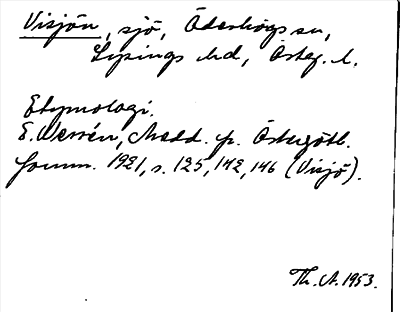 Visjön, sjö, Öderhögs sn,
Lysings hd, Österg. l.
Etymologi.
E. Wessén, Medd. fr. Östergötl.
fornm. 1921, s. 125, 142, 146 (Visjö).
Th. A. 1953.